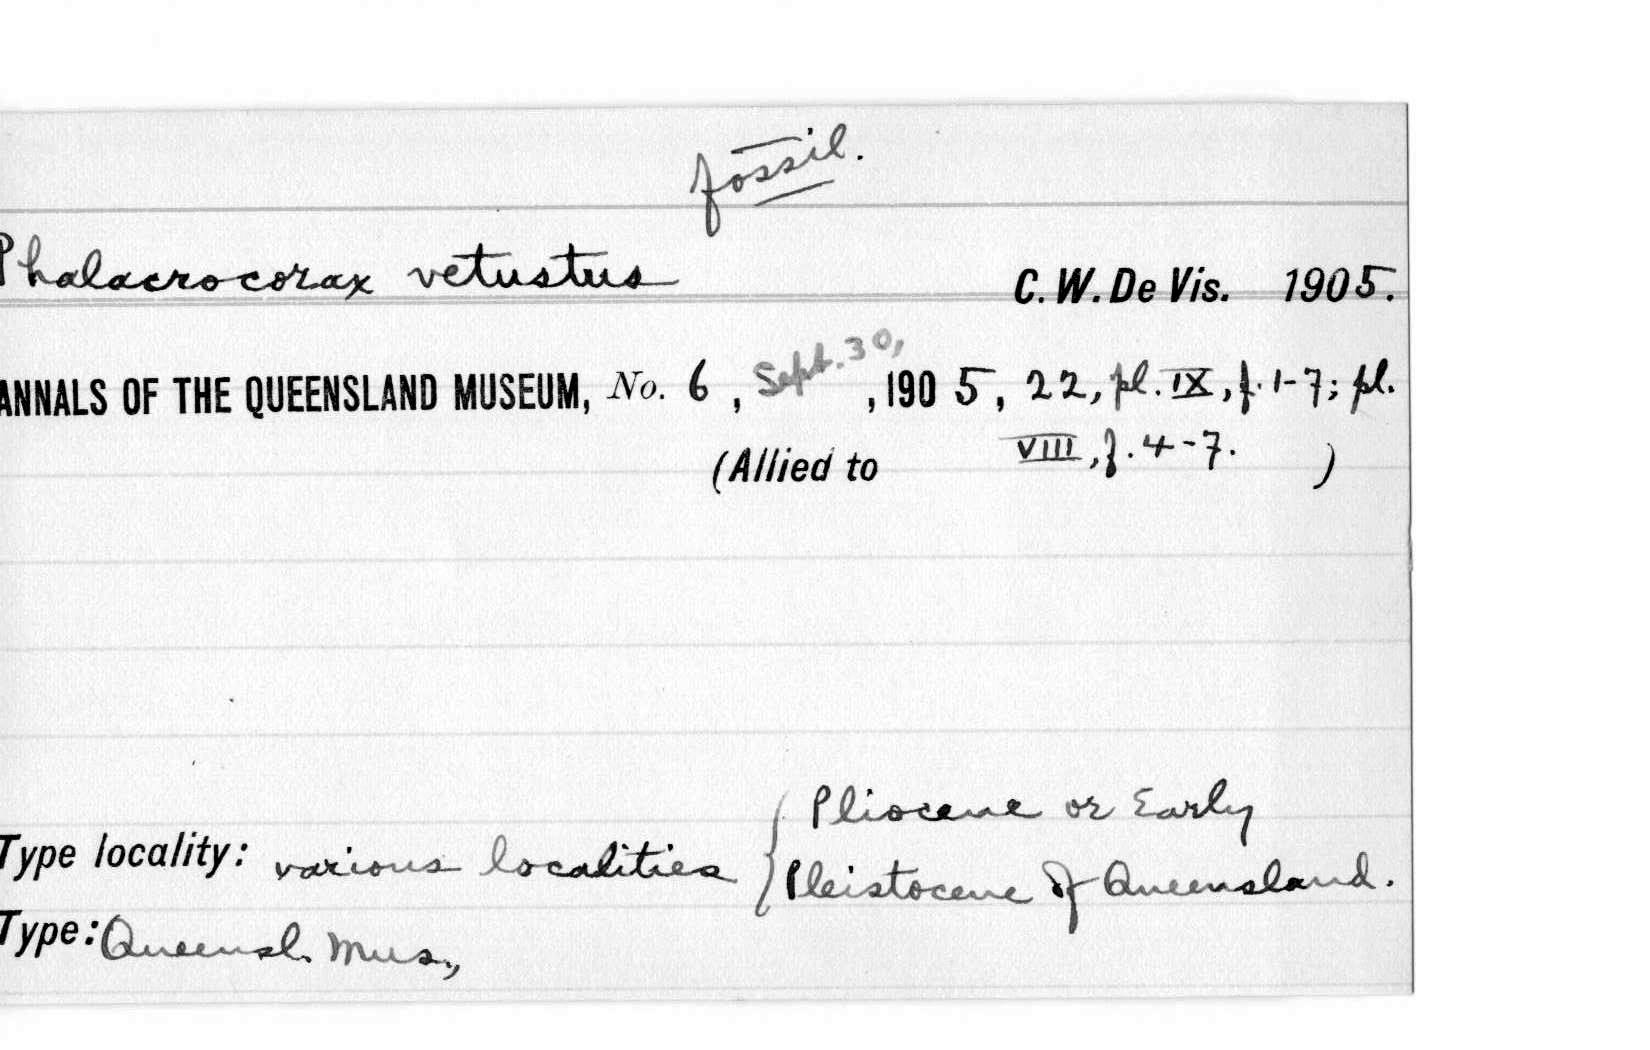 fossil.
Phalacrocorax vetustus C. W. De Vis. 1905.
ANNALS OF THE QUEENSLAND MUSEUM, No. 6, Sept. 30, , 1905, 22, pl. IX, f. 1-7; pl.
VIII, f. 4-7.
(Allied to )
Pliocene or Early
Type locality: various localities { Pleistocene of Queensland.
Type: Queensl. Mus.,